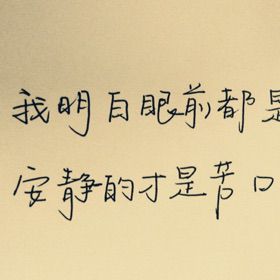 我明白眼前都是
安静的才是苦口